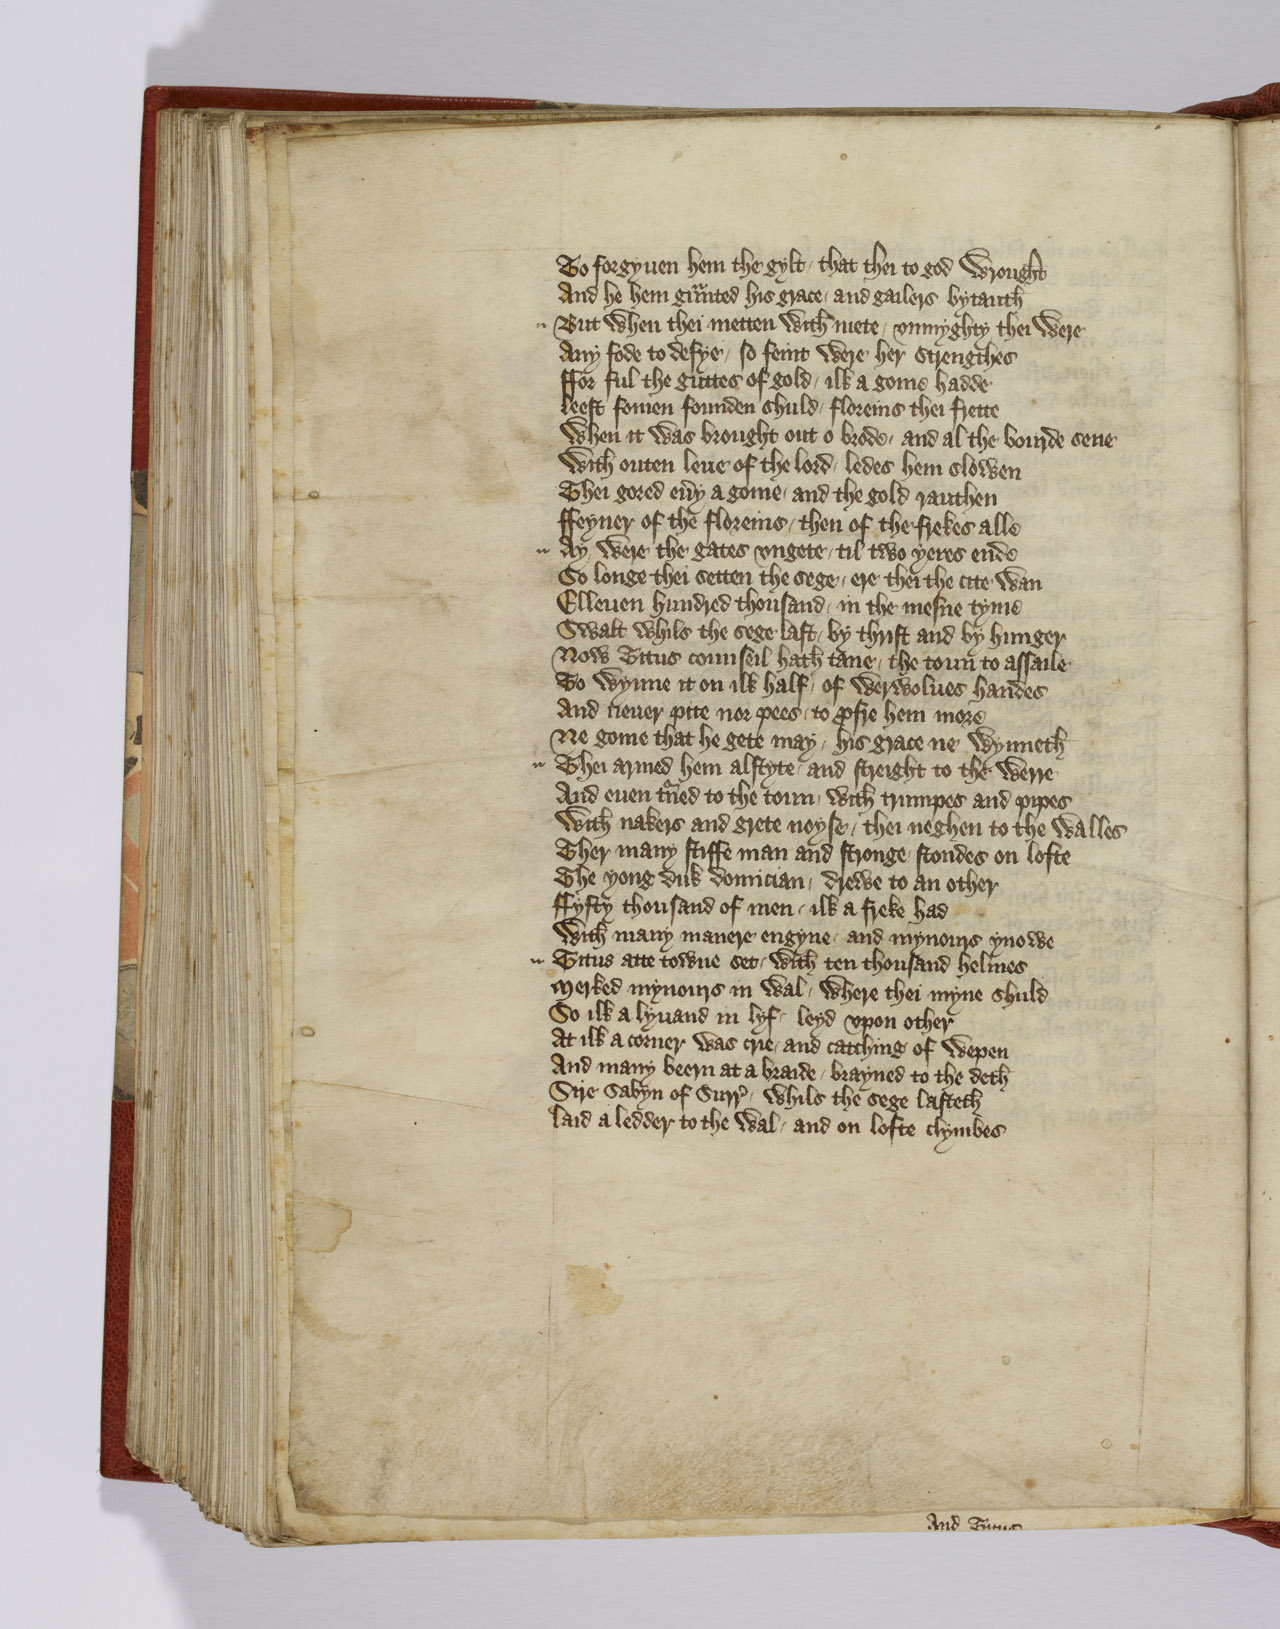 To forgyuen hem the gylt / that thei to god wrought
And he hem gũnted his grace / and gailers bytauth
But when thei metten with mete / vnmyghty thei were
Any fode to defye / so feint were her strengthes
ffor ful the guttes of gold / ilk a gome hadde
leest fomen founden shuld / floreins thei frette
When it was brought out o brode / and al the bourde sene
With outen leue of the lord / ledes hem slowen
Thei gored eu̾y a gome / and the gold rauthen
ffeyner of the floreins / then of the frekes alle
Ay were the gates vngete / til two yeres ende
So longe thei setten the sege / ere thei the cite wan
Elleuen hundred thousand / in the mesne tyme
Swalt whils the sege last / by thrist and by hunger
Now Titus counseil hath tane / the toun to assaile
To wynne it on ilk half / of werwolues handes
And neuer pite nor pees / to ꝓfre hem more
Ne gome that he gete may / his grace ne wynneth
Thei armed hem alstyte / and streight to the werre
And euen tũned to the toun / with trumpes and pipes
With nakers and grete noyse / thei neghen to the walles
Ther many stiffe man and stronge stondes on lofte
The yong duk domician / drewe to an other
ffyfty thousand of men / ilk a freke had
With many manere engyne / and mynours ynowe
Titus atte towne set / with ten thousand helmes
Merked mynours in wal / where thei myne shuld
So ilk a lyuand in lyf / leyd vpon other
At ilk a corner was crie / and catching of wepen
And many beern at a braide / brayned to the deth
Sire Sabyn of Surr̾ / whils the sege lasteth
laid a ledder to the wal / and on lofte clymbes
And Titus